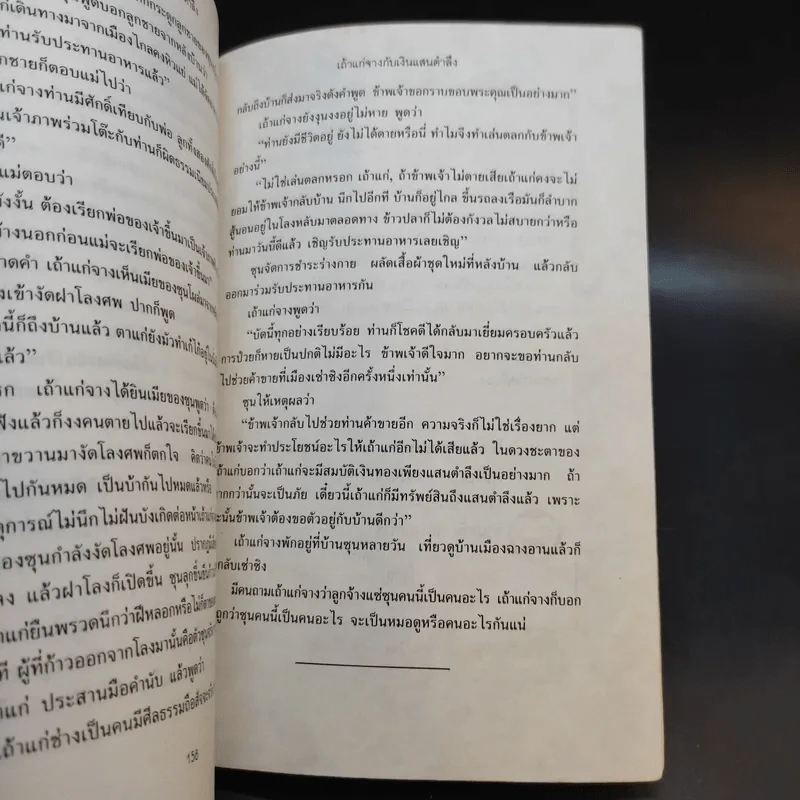 กระดูกลูกชายของ
พูดบอกลูกชายจากหลังบ้านว่า
เดินทางมาจากเมืองไกลคงหิวแย่
ท่านรับประทานอาหารแล้ว”
ชายก็ตอบแม่ไปว่า
แก่จางท่านมีศักดิ์เทียบกับพ่อ ลูกทั้งสอง
เจ้าภาพร่วมโต๊ะกับท่านก็ผิดธรรมเนียม
ดี”
แม่ตอบว่า
ยังงั้น ต้องเรียกพ่อของเจ้าขึ้นมาเป็น
ข้างนอกก่อนแม่จะเรียกพ่อของเจ้าขึ้นมา”
เถ้าแก่จางเห็นเมียของซุน
เข้างัดฝาโลงศพ ปากก็พูด
นี้ก็ถึงบ้านแล้ว ตาแก่ยังมัวทำ
แล้ว”
เถ้าแก่จางได้ยินเมียของซุนพูดว่า
ฟังแล้วก็งงคนตายไปแล้วจะเรียกขึ้นมา
ขวานมางัดโลงศพก็ตกใจ
ไปกันหมด เป็นบ้ากันไปหมดแล้วหรือ
เหตุการณ์ไม่นึกไม่ฝันบังเกิดต่อหน้า
ของซุนกำลังงัดโลงศพอยู่นั้น
ลง แล้วฝาโลงก็เปิดขึ้น
แก่ยืนพรวดนึกว่าผีหลอกหรือ
ที ผู้ที่ก้าวออกจากโลงมานั้นคือตัวซุน
แก่ ประสานมือคำนับ แล้วพูดว่า
เถ้าแก่ช่างเป็นคนมีศีลธรรมถือสัจจะ
158
เถ้าแก่จางกับเงินแสนตำลึง
กลับถึงบ้านก็ส่งมาจริงดังคำพูด ข้าพเจ้าขอกราบขอบพระคุณเป็นอย่างมาก”
เถ้าแก่จางยังงุนงงอยู่ไม่หาย พูดว่า
“ท่านยังมีชีวิตอยู่ ยังไม่ได้ตายหรือนี่ ทำไมจึงทำเล่นตลกกับข้าพเจ้า
อย่างนี้”
“ไม่ใช่เล่นตลกหรอก เถ้าแก่, ถ้าข้าพเจ้าไม่ตายเสียเถ้าแก่คงจะไม่
ยอมให้ข้าพเจ้ากลับบ้าน นึกไปอีกที บ้านก็อยู่ไกล ขึ้นรถลงเรือมันก็ลำบาก
สู้นอนอยู่ในโลงหลับมาตลอดทาง ข้าวปลาก็ไม่ต้องกังวลไม่สบายกว่าหรือ
ท่านมาวันนี้ดีแล้ว เชิญรับประทานอาหารเลยเชิญ”
ซุนจัดการชำระร่างกาย ผลัดเสื้อผ้าชุดใหม่ที่หลังบ้าน แล้วกลับ
ออกมาร่วมรับประทานอาหารกัน
เถ้าแก่จางพูดว่า
“บัดนี้ทุกอย่างเรียบร้อย ท่านก็โชคดีได้กลับมาเยี่ยมครอบครัวแล้ว
การป่วยก็หายเป็นปกติไม่มีอะไร ข้าพเจ้าดีใจมาก อยากจะขอท่านกลับ
ไปช่วยค้าขายที่เมืองเซ่าซิงอีกครั้งหนึ่งเท่านั้น”
ซุนให้เหตุผลว่า
“ข้าพเจ้ากลับไปช่วยท่านค้าขายอีก ความจริงก็ไม่ใช่เรื่องยาก แต่
ข้าพเจ้าจะทำประโยชน์อะไรให้เถ้าแก่อีกไม่ได้เสียแล้ว ในดวงชะตาของ
เถ้าแก่บอกว่าเถ้าแก่จะมีสมบัติเงินทองเพียงแสนตำลึงเป็นอย่างมาก ถ้า
มากกว่านั้นจะเป็นภัย เดี๋ยวนี้เถ้าแก่ก็มีทรัพย์สินถึงแสนตำลึงแล้ว เพราะ
ฉะนั้นข้าพเจ้าต้องขอตัวอยู่กับบ้านดีกว่า”
เถ้าแก่จางพักอยู่ที่บ้านซุนหลายวัน เที่ยวดูบ้านเมืองฉางอานแล้วก็
กลับเซ่าซิง
มีคนถามเถ้าแก่จางว่าลูกจ้างแซ่ซุนคนนี้เป็นคนอะไร เถ้าแก่จางก็บอก
ถูกว่าซุนคนนี้เป็นคนอะไร จะเป็นหมอดูหรือคนอะไรกันแน่